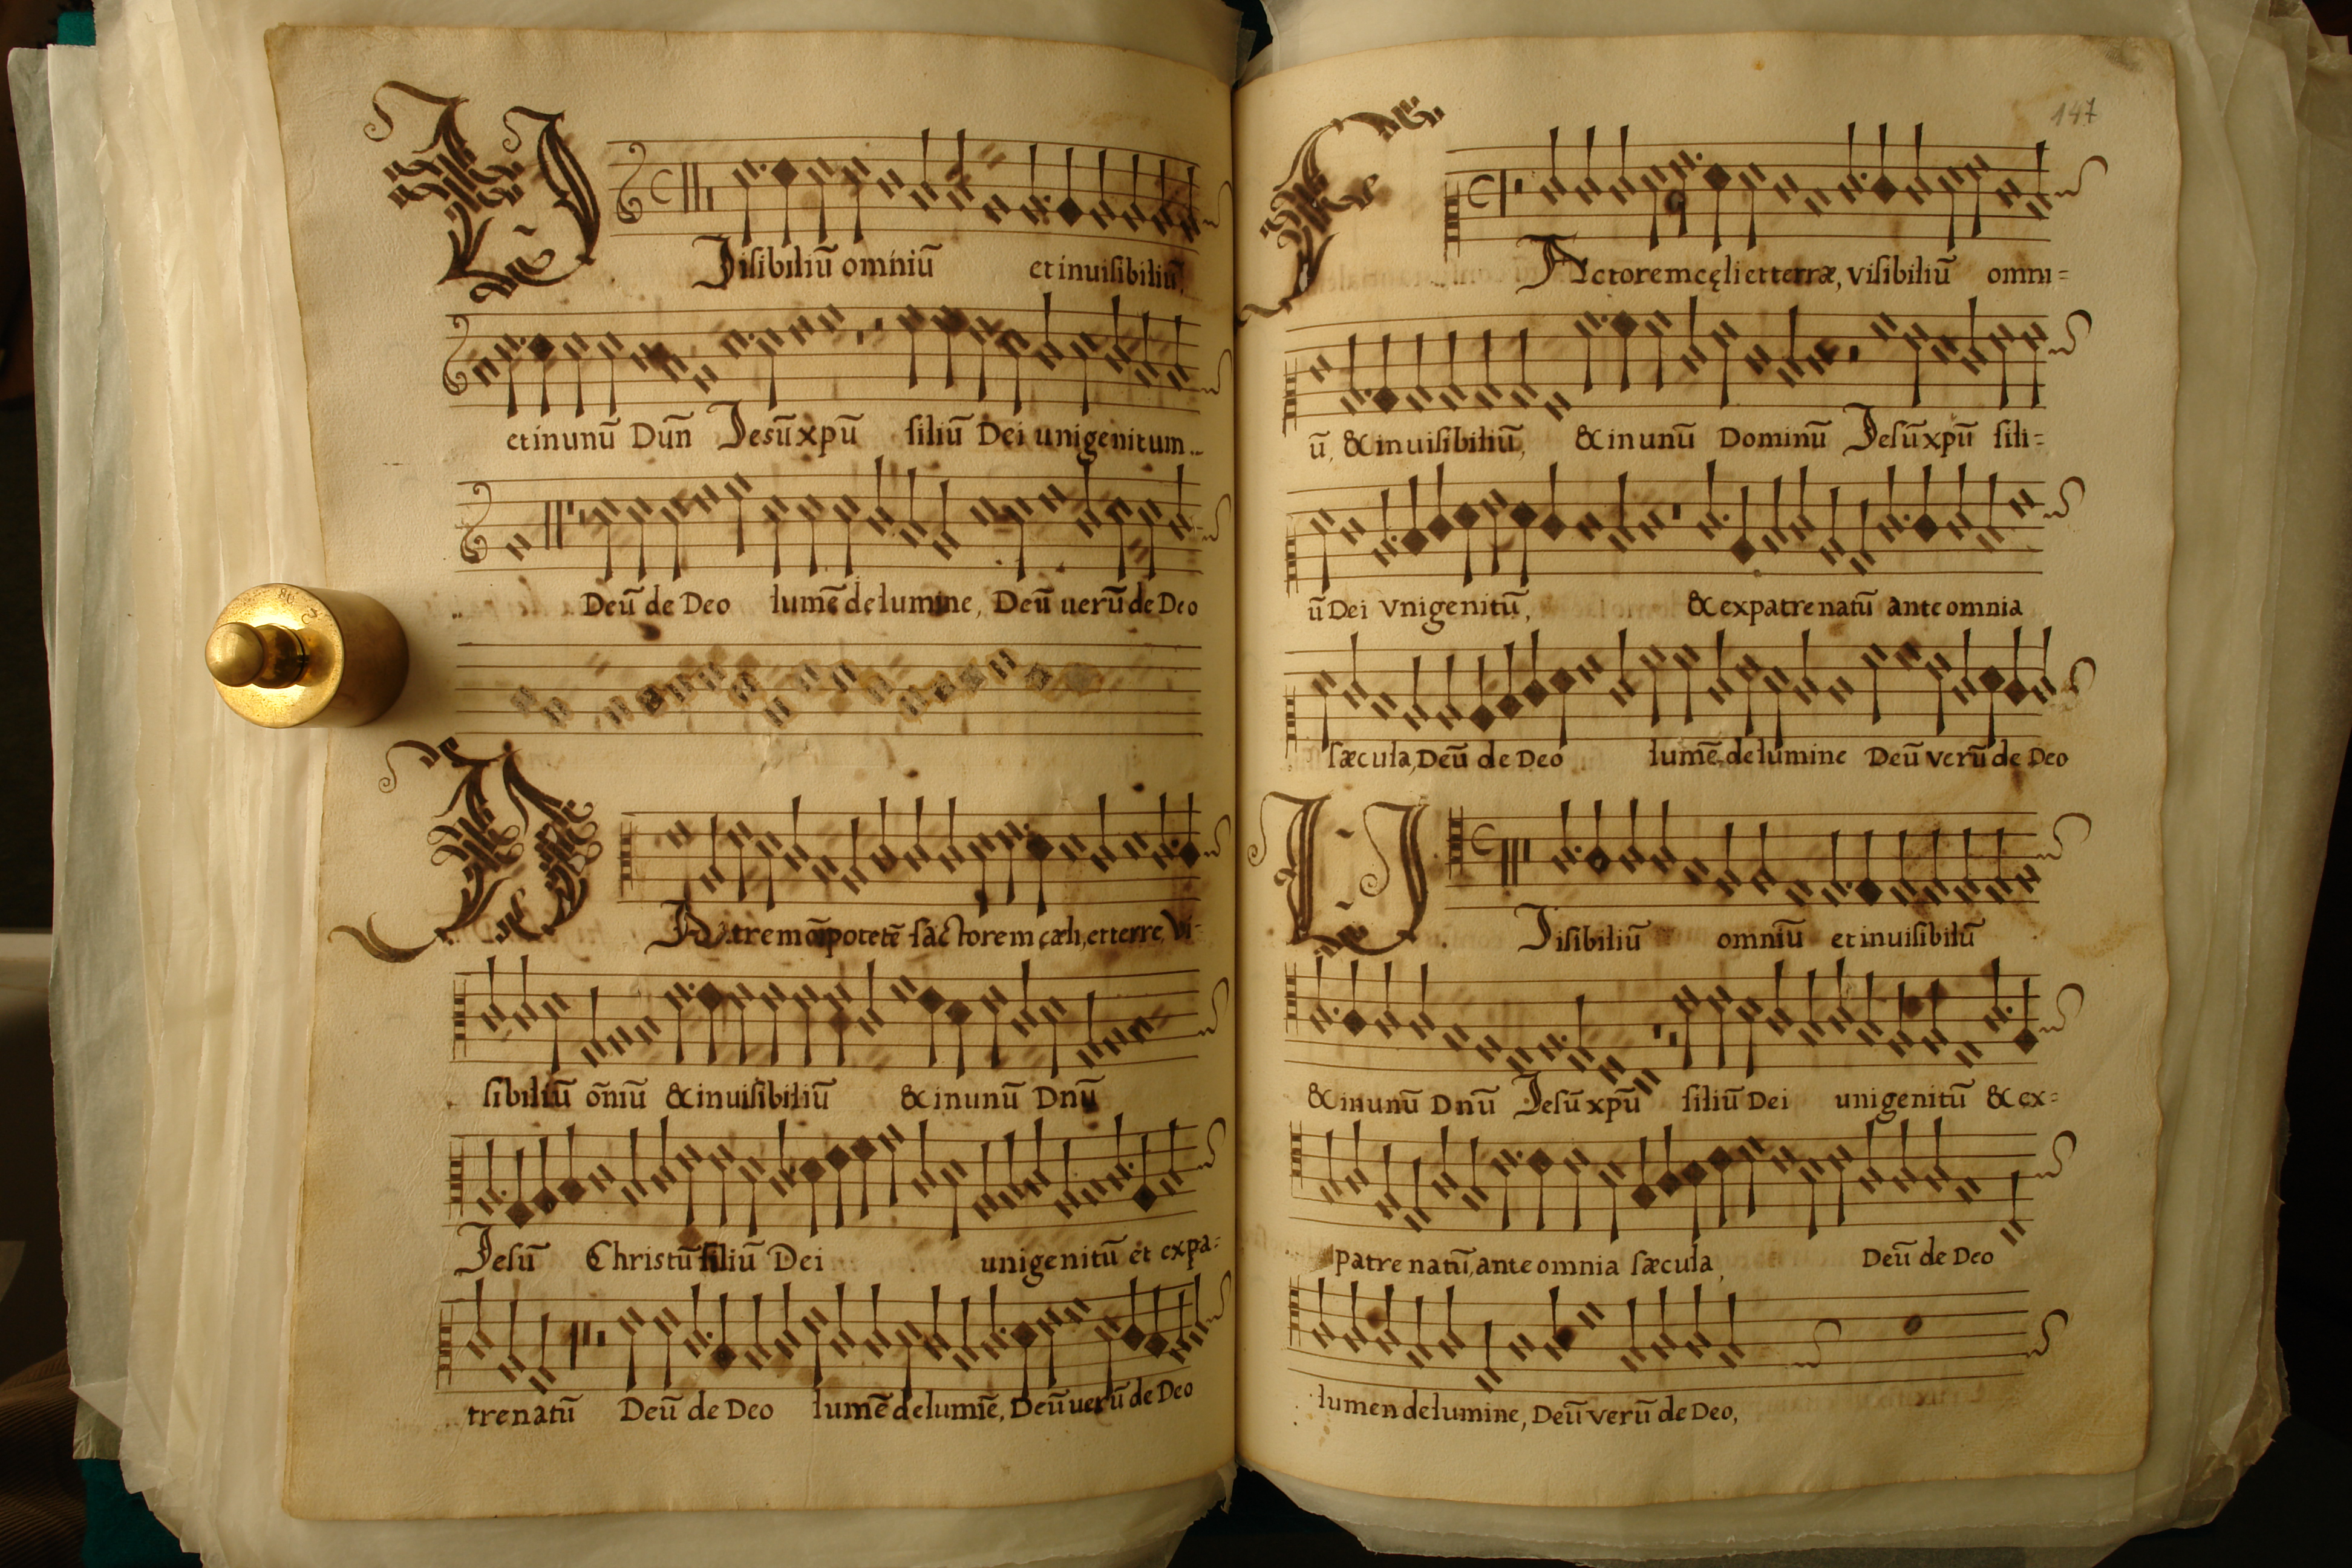 Visibiliū omniū et inuisibiliū,
et in unū Dūn Jesū xpū filiū Dei unigenitum..
Deū de Deo lumē de lumine, Deū uerū de Deo
Patrem oīpotetē factorem cæli, et terre, Vi-
sibiliū ōniū & inuisibiliū & in unū Dnū
Jesū Christū filiū Dei unigenitū et ex pa-
tre natū Deū de Deo lumē de lumīe, Deū uerū de Deo
147
Factorem cęli et terræ, visibiliū omni=
ū, & inuisibiliū, & in unū Dominū Jesū xpū fili=
ū Dei Vnigenitū, & ex patre natū ante omnia
sæcula, Deū de Deo lumē de lumine Deū verū de Deo
Visibiliū omniū et inuisibiliū
& in unū Dnū Jesū xpū filiū Dei unigenitū & ex=
patre natū, ante omnia sæcula, Deū de Deo
lumen de lumine, Deū verū de Deo,